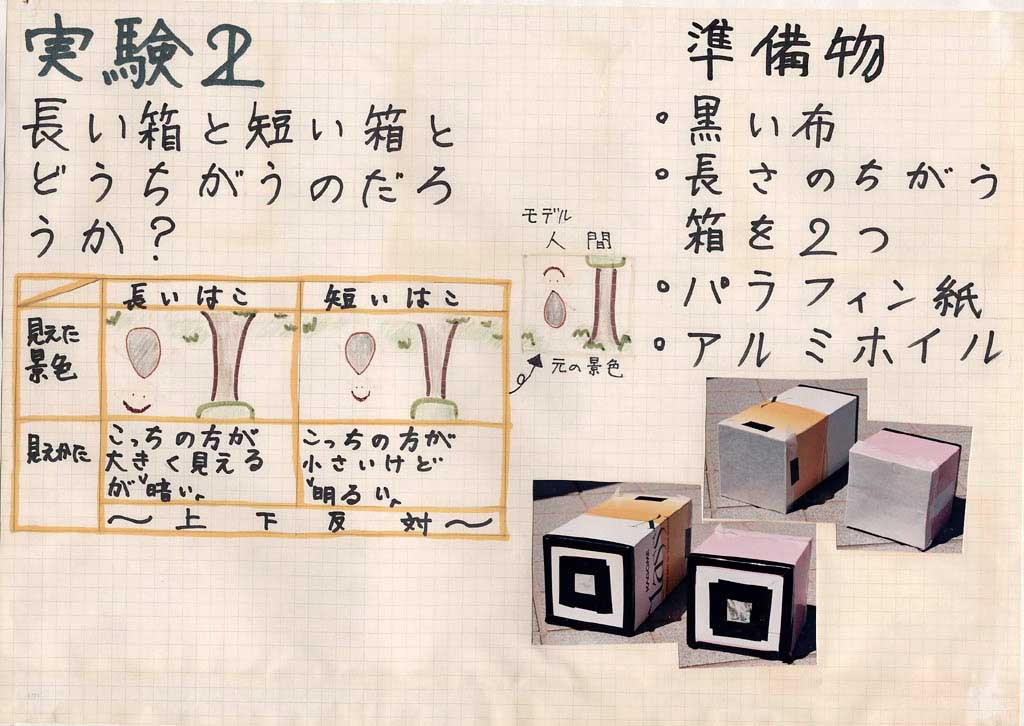 実験2
長い箱と短い箱と
どうちがうのだろ
うか?
長いはこ
短いはこ
見えた
景色
見えかた
こっちの方が
大きく見える
が暗い。
こっちの方が
小さいけど
明るい。
〜上下反対〜
モデル
人間
元の景色
準備物
・黒い布
・長さのちがう
箱を2つ
・パラフィン紙
・アルミホイル
KAGOME